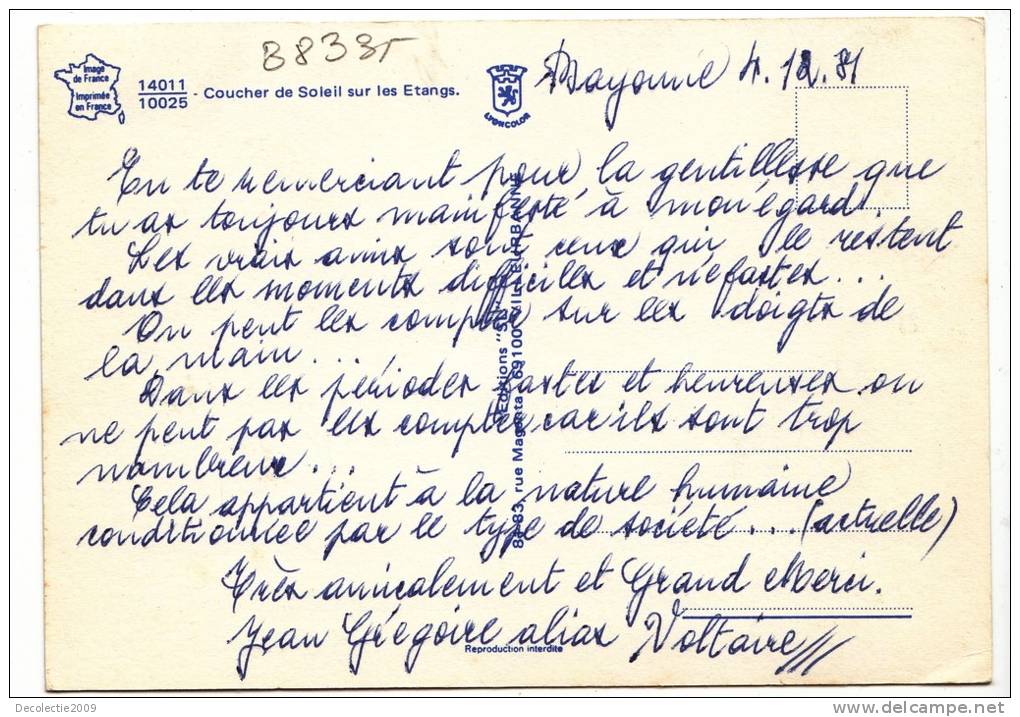 B8335
Image
de France
Imprimée
en France
14011
10025 - Coucher de Soleil sur les Etangs.
LYONCOLOR
Bayonne 4.12.81
En te remerciant pour la gentillesse que
tu as toujours manifesté à mon égard.
Les vrais amis sont ceux qui le restent
dans les moments difficiles et néfastes...
On peut les compter sur les doigts de
la main...
Dans les périodes fastes et heureuses on
ne peut pas les compter car ils sont trop
nombreux...
Cela appartient à la nature humaine
conditionnée par le type de société... (actuelle)
Très amicalement et Grand Merci.
Jean Grégoire alias Voltaire
Editions
83, rue Magenta 69100 VILLEURBANNE
Reproduction interdite
Decolectie2009